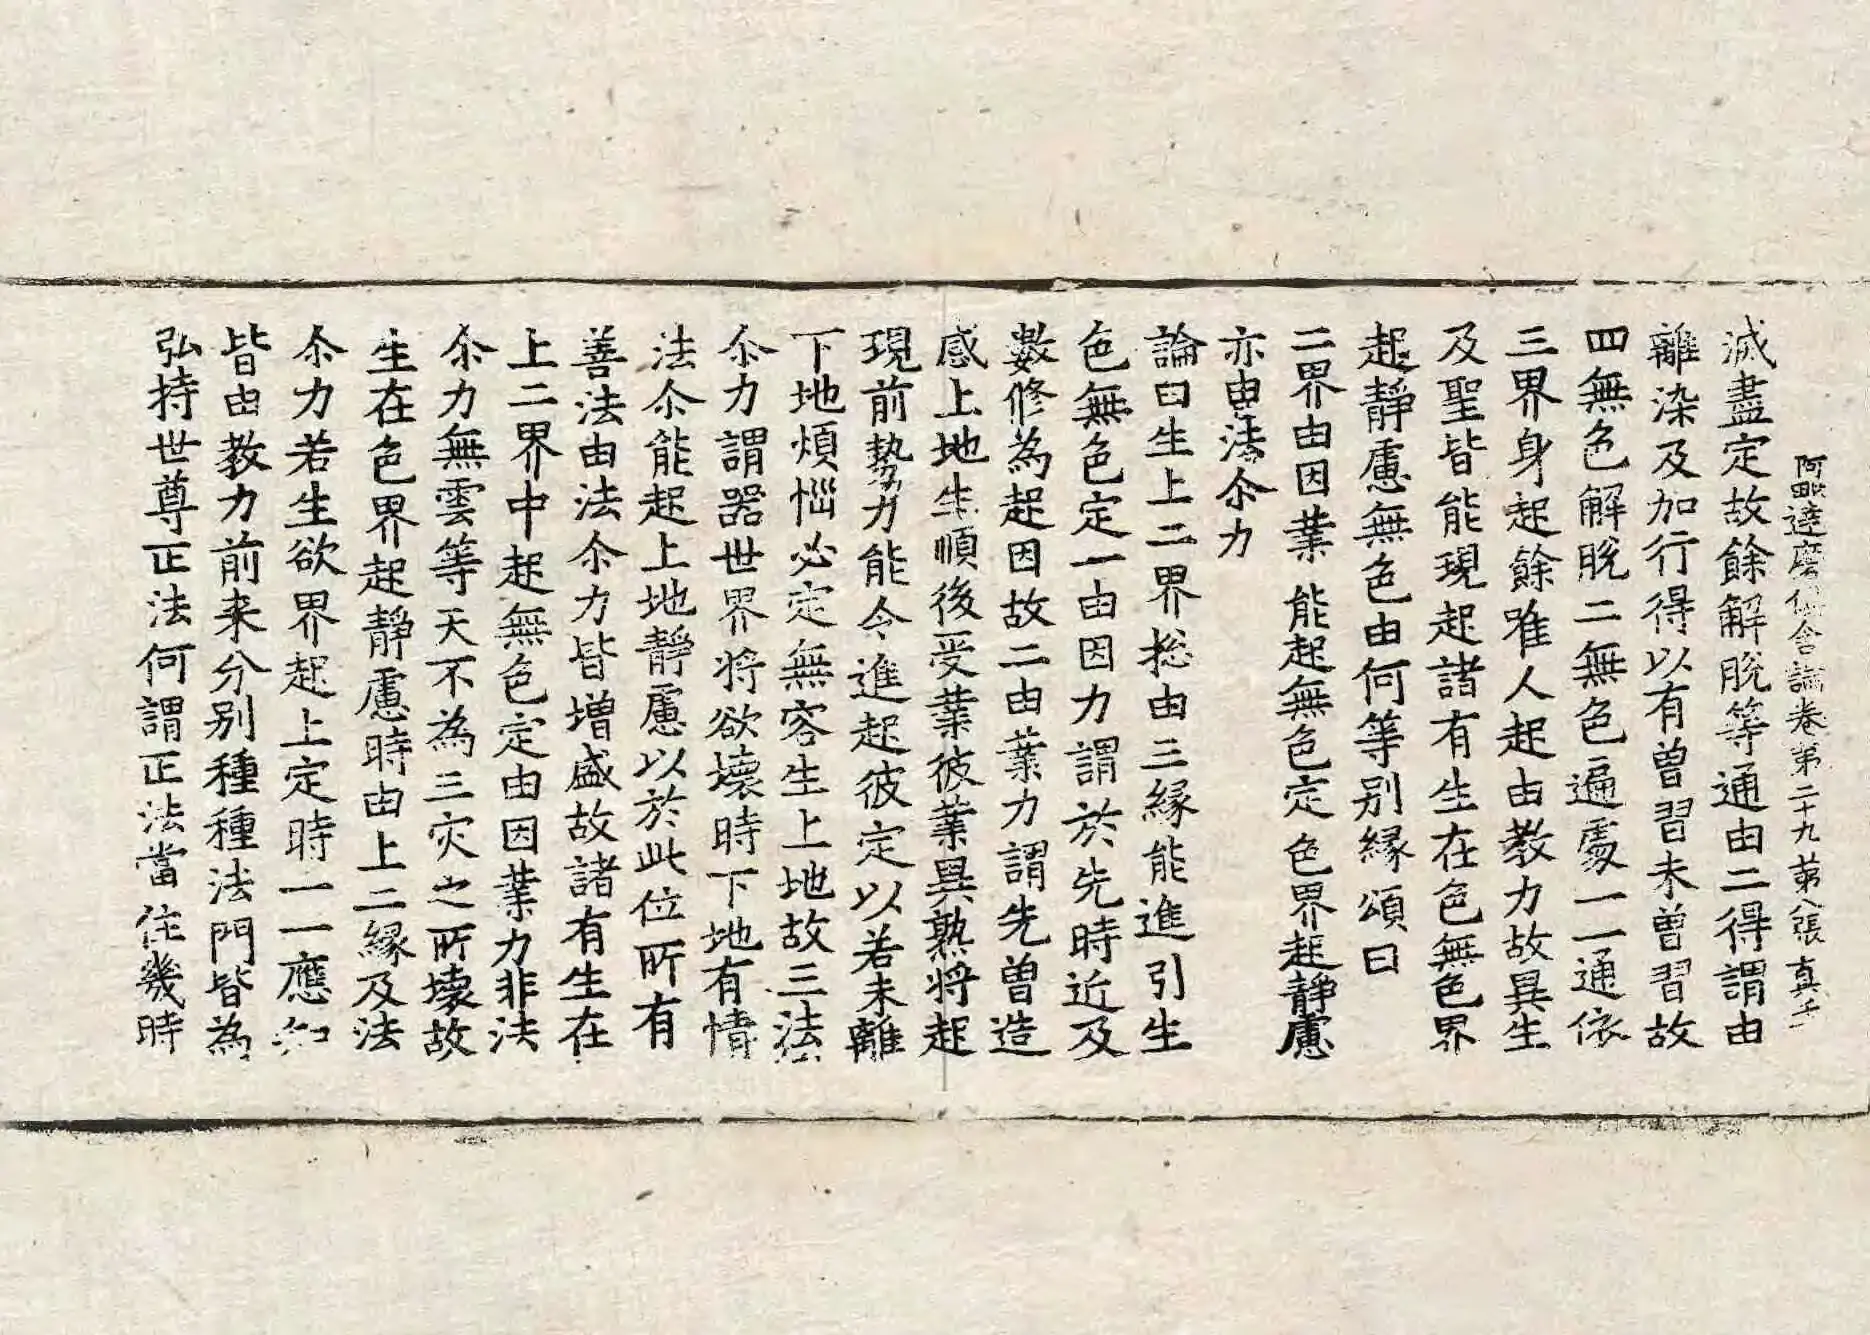 阿毗達磨俱舍論卷第二十九 第八張 真
滅盡定故餘解脫等通由二得謂由
離染及加行得以有曾習未曾習故
四無色解脫二無色遍處一一通依
三界身起餘唯人起由教力故異生
及聖皆能現起諸有生在色無色界
起靜慮無色由何等別緣頌曰
二界由因業 能起無色定 色界起靜慮
亦由法尒力
論曰生上二界捴由三緣能進引生
色無色定一由因力謂於先時近及
數修為起因故二由業力謂先曾造
感上地生順後受業彼業異熟將起
現前勢力能令進起彼定以若未離
下地煩惱必定無容生上地故三法
尒力謂器世界將欲壞時下地有情
法尒能起上地靜慮以於此位所有
善法由法尒力皆增盛故諸有生在
上二界中起無色定由因業力非法
尒力無雲等天不為三灾之所壞故
生在色界起靜慮時由上二緣及法
尒力若生欲界起上定時一一應知
皆由教力前来分別種種法門皆為
弘持世尊正法何謂正法當住幾時